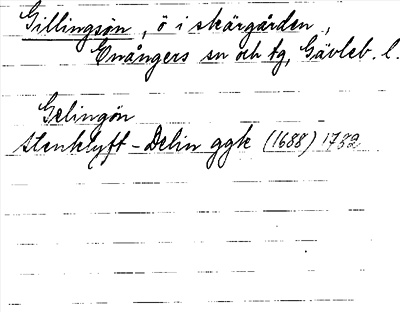 Gillingsön, ö i skärgården,
Enångers sn och tg, Gävleb. l.
Gelingön
Stenklyft - Delin ggk (1688) 1732